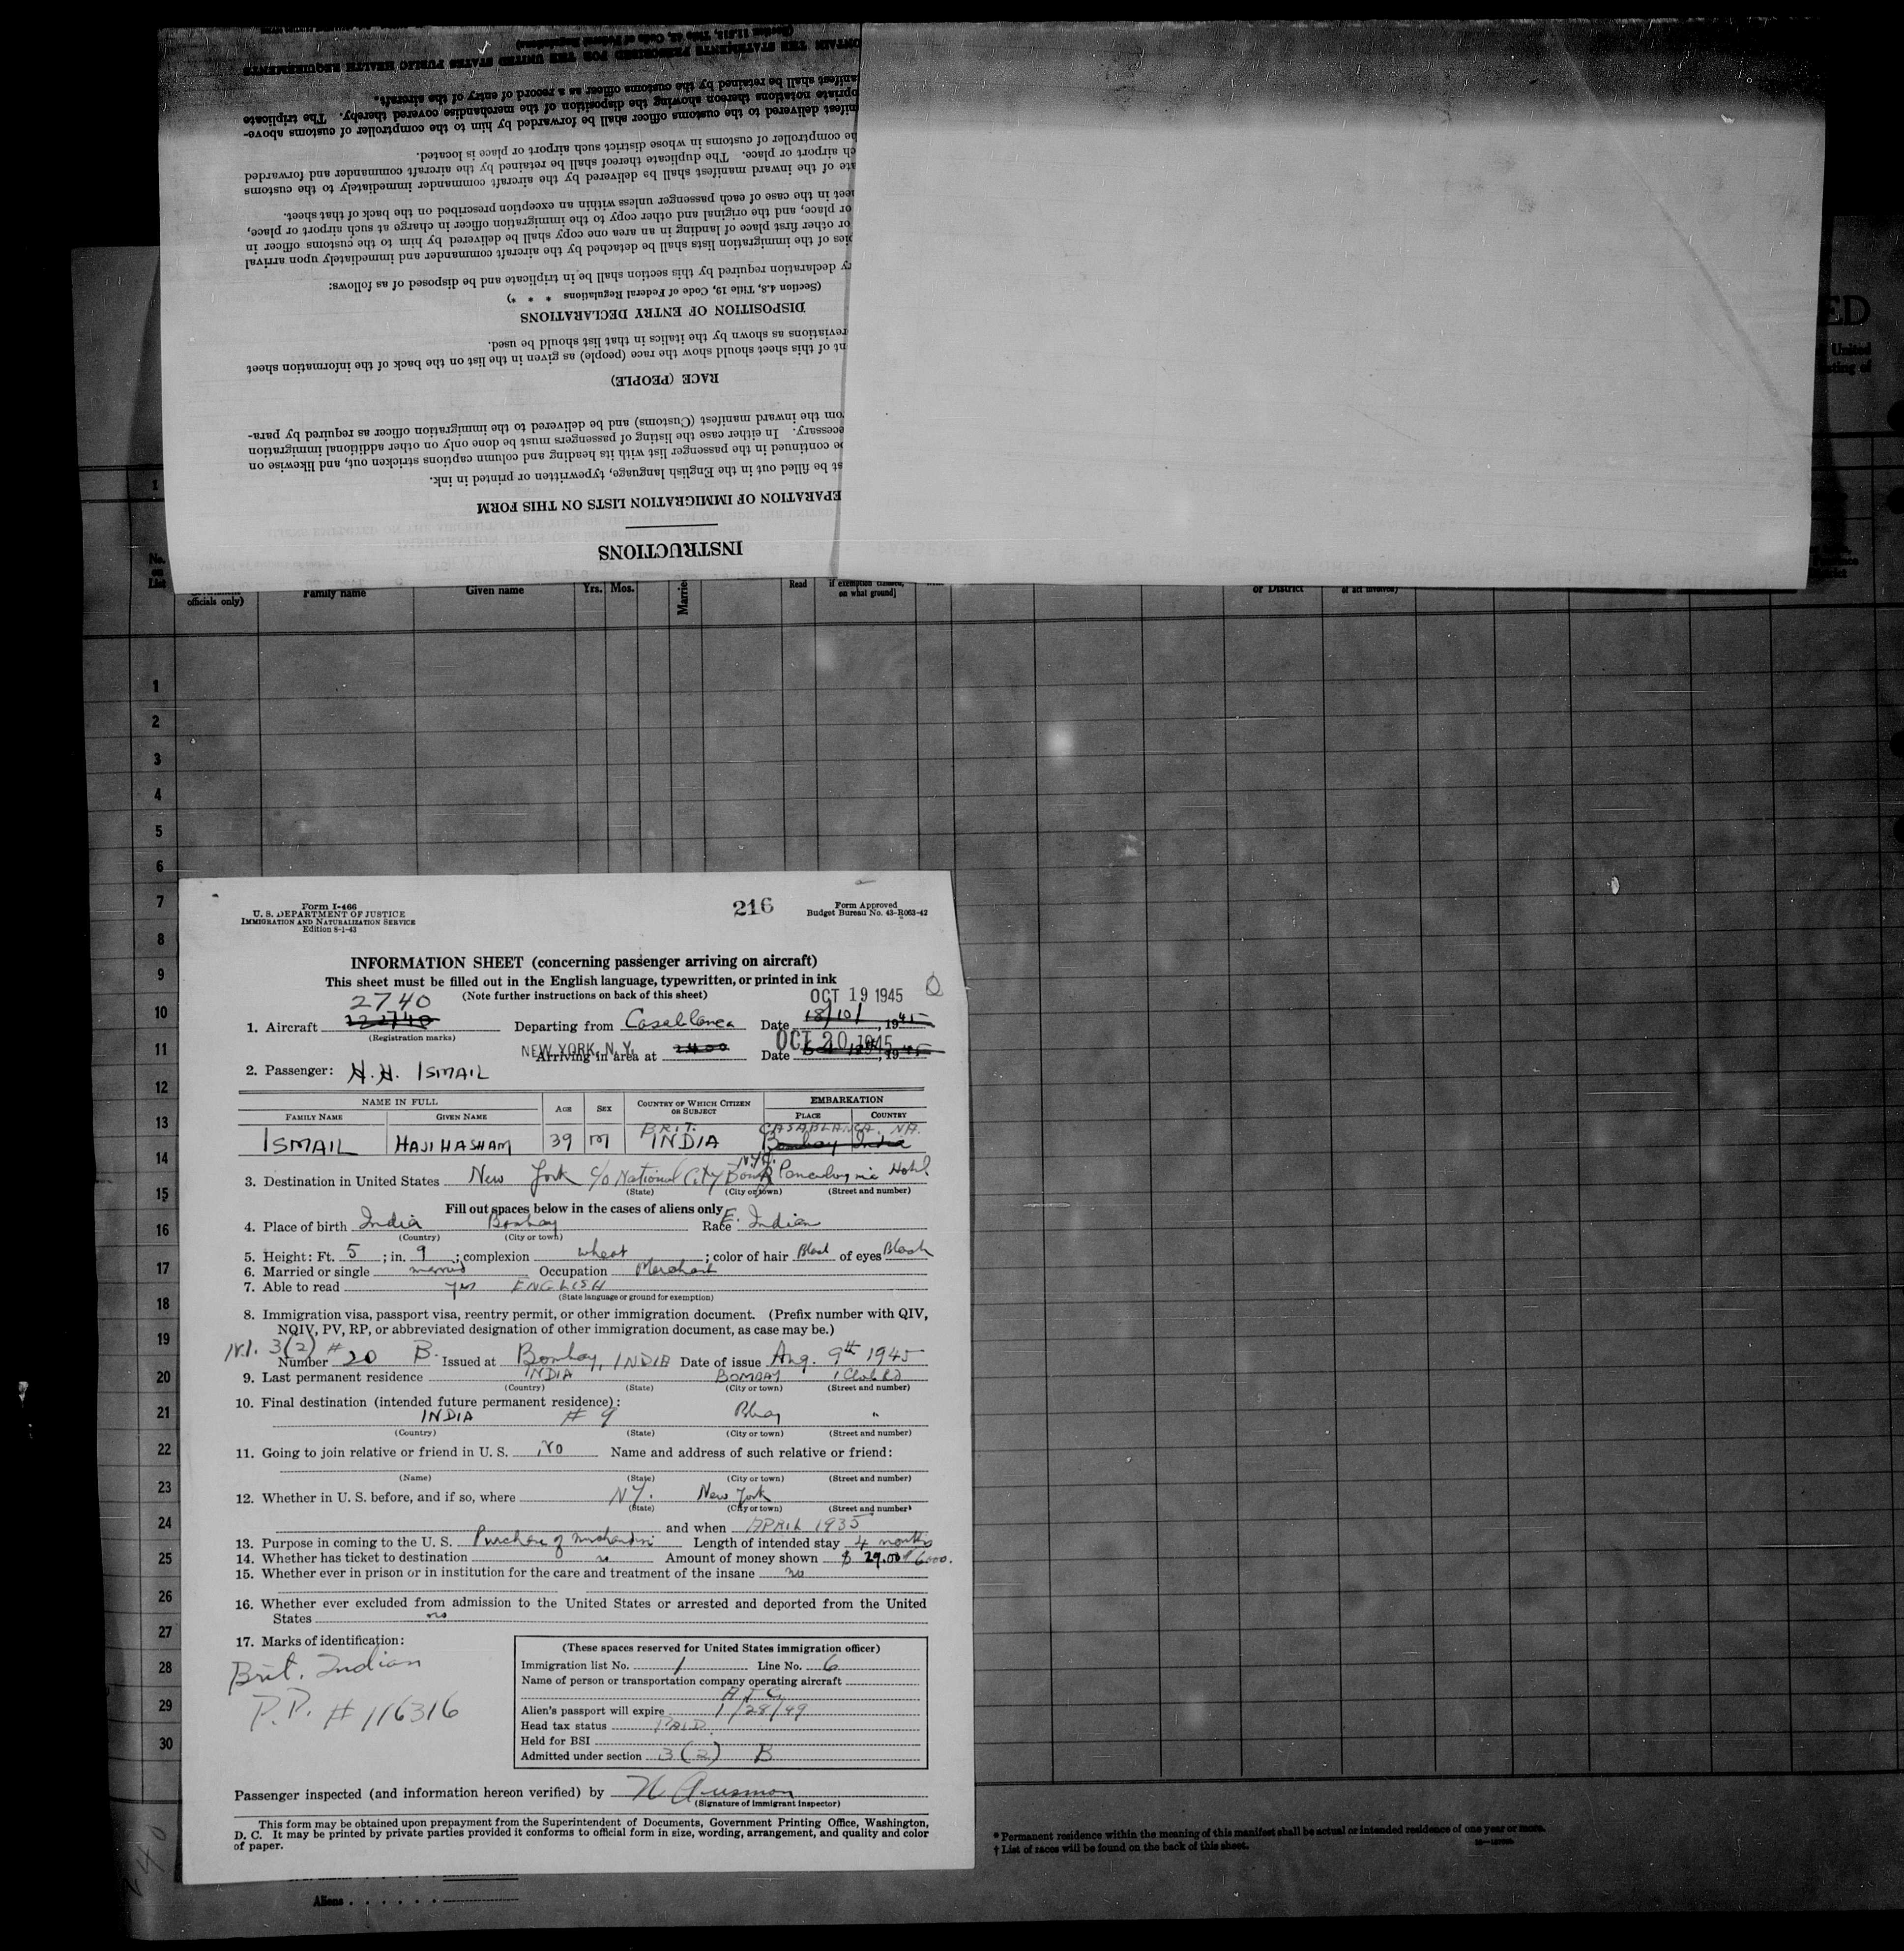 (Section 11.513, Title 42, Code of Federal Regulations)
ONTAIN THE STATEMENTS PRESCRIBED FOR THE UNITED STATES PUBLIC HEALTH REQUIREMENTS
anifest shall be retained by the customs officer as a record of entry of the aircraft.
opriate notations thereon showing the disposition of the merchandise covered thereby. The triplicate
nifest delivered to the customs officer shall be forwarded by him to the comptroller of customs above-
he comptroller of customs in whose district such airport or place is located.
ch airport or place. The duplicate thereof shall be retained by the aircraft commander and forwarded
ate of the inward manifest shall be delivered by the aircraft commander immediately to the customs
eet in the case of each passenger unless within an exception prescribed on the back of that sheet.
or place, and the original and other copy to the immigration officer in charge at such airport or place,
or other first place of landing in an area one copy shall be delivered by him to the customs officer in
pies of the immigration lists shall be detached by the aircraft commander and immediately upon arrival
ry declaration required by this section shall be in triplicate and be disposed of as follows:
(Section 4.8, Title 19, Code of Federal Regulations * * *)
DISPOSITION OF ENTRY DECLARATIONS
reviations as shown by the italics in that list should be used.
nt of this sheet should show the race (people) as given in the list on the back of the information sheet
RACE (PEOPLE)
om the inward manifest (Customs) and be delivered to the immigration officer as required by para-
ecessary. In either case the listing of passengers must be done only on other additional immigration
be continued in the passenger list with its heading and column captions stricken out, and likewise on
st be filled out in the English language, typewritten or printed in ink.
EPARATION OF IMMIGRATION LISTS ON THIS FORM
INSTRUCTIONS
ED
United
ting of
1
No. on List
officials only) Family name Given name Yrs. Mos. Marrie Read if exemption claimed, on what ground] or District
1
2
3
4
5
6
7
8
9
10
11
12
13
14
15
16
17
18
19
20
21
22
23
24
25
26
27
28
29
30
Form I-466
U. S. DEPARTMENT OF JUSTICE
IMMIGRATION AND NATURALIZATION SERVICE
Edition 8-1-43
216
Form Approved
Budget Bureau No. 43-R063-42
INFORMATION SHEET (concerning passenger arriving on aircraft)
This sheet must be filled out in the English language, typewritten, or printed in ink
(Note further instructions on back of this sheet)
2740 OCT 19 1945
1. Aircraft 122740 Departing from Casablanca Date 18/10/, 1945
(Registration marks)
NEW YORK, N. Y. OCT 20 1945
Arriving in area at 2400 Date , 1945
2. Passenger: H. H. ISMAIL
NAME IN FULL AGE SEX COUNTRY OF WHICH CITIZEN OR SUBJECT EMBARKATION
FAMILY NAME GIVEN NAME PLACE COUNTRY
BRIT. CASABLANCA. NA.
ISMAIL HAJI HASHAM 39 M INDIA Bombay India
N.Y.C.
3. Destination in United States New York c/o National City Bank Pennsylvania Hotel
(State) (City or town) (Street and number)
Fill out spaces below in the cases of aliens only
4. Place of birth India Bombay Race E. Indian
(Country) (City or town)
5. Height: Ft. 5 ; in. 9 ; complexion wheat ; color of hair Black of eyes Black
6. Married or single married Occupation Merchant
7. Able to read yes ENGLISH
(State language or ground for exemption)
8. Immigration visa, passport visa, reentry permit, or other immigration document. (Prefix number with QIV,
NQIV, PV, RP, or abbreviated designation of other immigration document, as case may be.)
3(2) #
Number 20 B. Issued at Bombay, INDIA Date of issue Aug. 9th 1945
9. Last permanent residence INDIA BOMBAY 1 Club Rd
(Country) (State) (City or town) (Street and number)
10. Final destination (intended future permanent residence):
INDIA # 9 Bbay "
(Country) (State) (City or town) (Street and number)
11. Going to join relative or friend in U. S. No Name and address of such relative or friend:
(Name) (State) (City or town) (Street and number)
12. Whether in U. S. before, and if so, where NY. New York
(State) (City or town) (Street and number)
and when APRIL 1935
13. Purpose in coming to the U. S. Purchase of merchandise Length of intended stay 4 months
14. Whether has ticket to destination no Amount of money shown $ 29.00 $6000.
15. Whether ever in prison or in institution for the care and treatment of the insane no
16. Whether ever excluded from admission to the United States or arrested and deported from the United
States no
17. Marks of identification:
Brit. Indian
P.P. # 116316
(These spaces reserved for United States immigration officer)
Immigration list No. 1 Line No. 6
Name of person or transportation company operating aircraft
A T C
Alien's passport will expire 1/28/49
Head tax status PAID
Held for BSI
Admitted under section 3(2) B
Passenger inspected (and information hereon verified) by
(Signature of immigrant inspector)
This form may be obtained upon prepayment from the Superintendent of Documents, Government Printing Office, Washington,
D. C. It may be printed by private parties provided it conforms to official form in size, wording, arrangement, and quality and color
of paper.
* Permanent residence within the meaning of this manifest shall be actual or intended residence of one year or more.
† List of races will be found on the back of this sheet.
Aliens